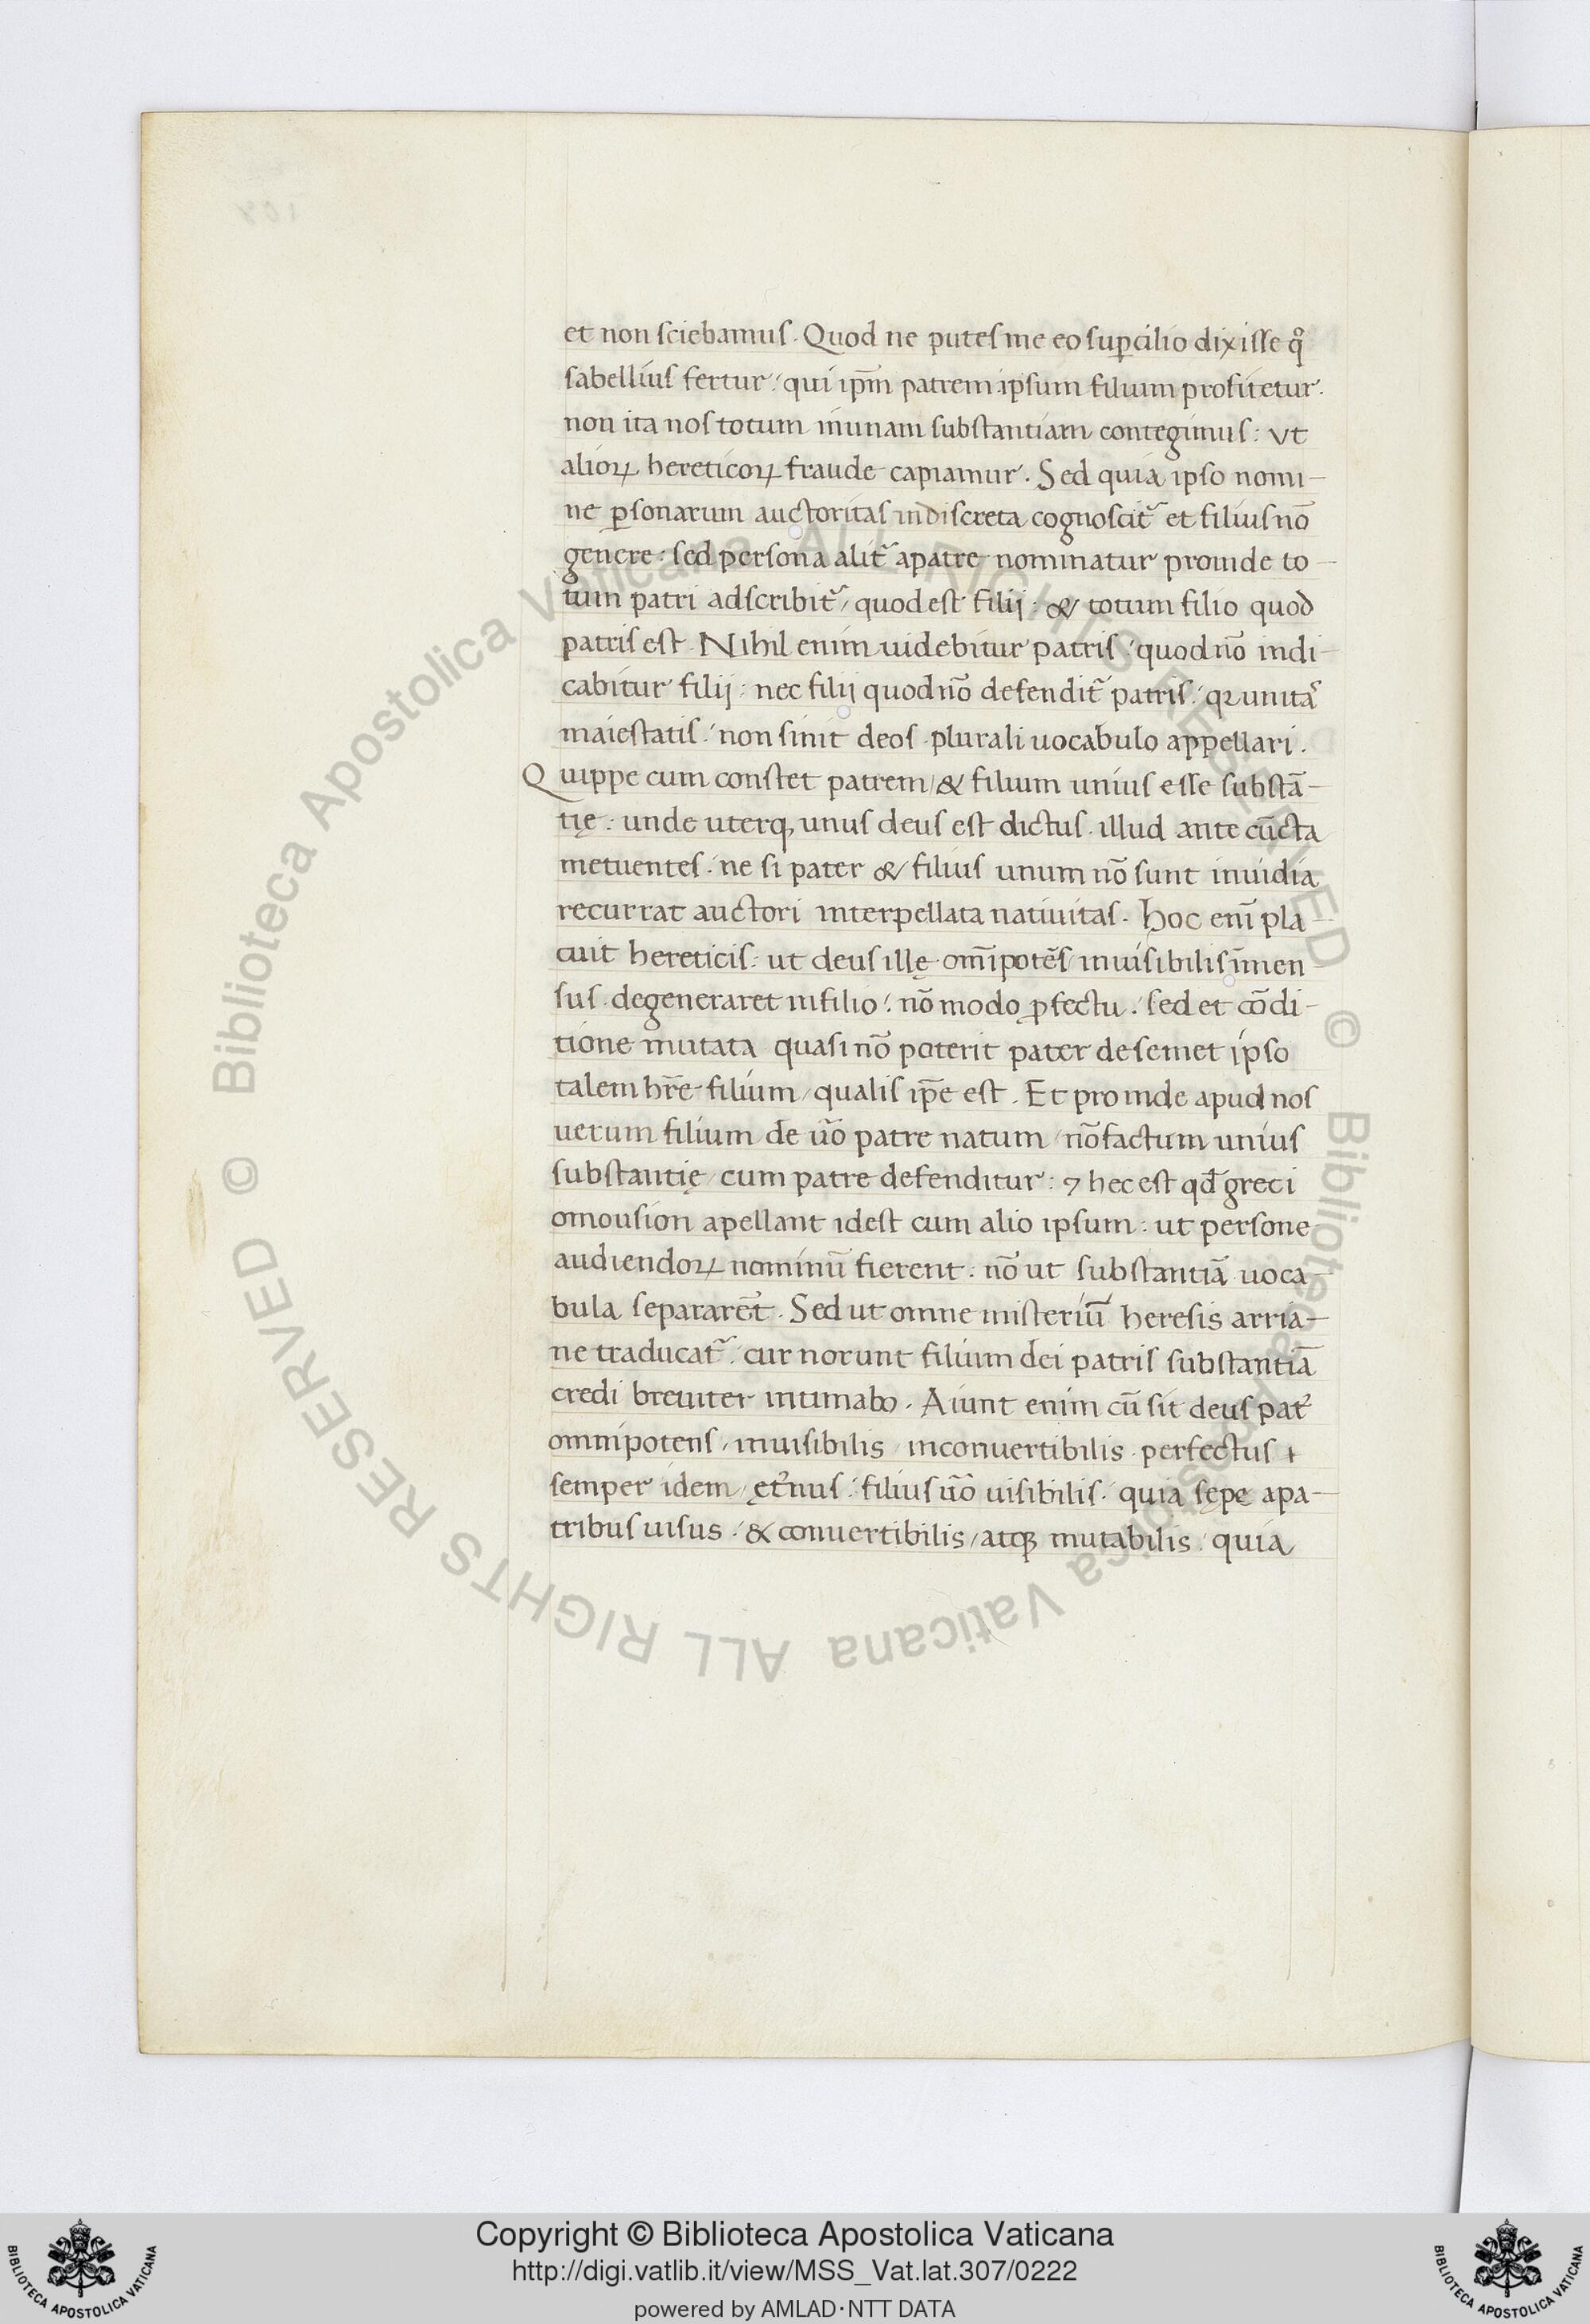 et non sciebamus. Quod ne putes me eo suꝑcilio dixisse qͦ
sabellius fertur: qui ip̄m patrem ipsum filium profitetur.
non ita nos totum inunam substantiam contegimus: vt
alioꝝ hereticoꝝ fraude capiamur. Sed quia ipso nomi-
ne ꝑsonarum auctoritas indiscreta cognoscit᷑ et filius nō
genere: sed persona alit᷑ apatre nominatur proinde to-
tum patri adscribit᷑, quod est filij: & totum filio quod
patris est. Nihil enim uidebitur patris: quod nō indi-
cabitur filij: nec filij quod nō defendit᷑ patris: qꝛ unitas
maiestatis: non sinit deos plurali uocabulo appellari.
Quippe cum constet patrem / & filium unius esse substā-
tię: unde uterq; unus deus est dictus. illud ante cūcta
metuentes. ne si pater & filius unum nō sunt inuidia
recurrat auctori interpellata natiuitas. Hoc enī pla-
cuit hereticis: ut deus ille om̄ipotēs inuisibilis īmen-
sus. degeneraret infilio: nō modo ꝓfectu: sed et cōdi-
tione mutata quasi nō poterit pater de semet ipso
talem hr̄e filium / qualis ip̄e est. Et proinde apud nos
uerum filium de uo̅ patre natum nō factum unius
substantię / cum patre defenditur: ⁊ hec est qđ greci
omousion apellant idest cum alio ipsum: ut persone
audiendoꝝ nominū fierent: nō ut substantiā uoca-
bula separarēt. Sed ut omne misteriū heresis arria-
ne traducat᷑: cur norunt filium dei patris substantiā
credi breuiter intimabo. Aiunt enim cū sit deus pat᷑
omnipotens / inuisibilis / inconuertibilis perfectus ⁊
semper idem / ęt᷑nus: filius uo̅ uisibilis. quia sępe apa-
tribus uisus: & conuertibilis / atqꝫ mutabilis: quia
© Biblioteca Apostolica Vaticana ALL RIGHTS RESERVED © Biblioteca Apostolica Vaticana ALL RIGHTS RESERVED
Copyright © Biblioteca Apostolica Vaticana
http://digi.vatlib.it/view/MSS_Vat.lat.307/0222
powered by AMLAD·NTT DATA
BIBLIOTECA APOSTOLICA VATICANA
BIBLIOTECA APOSTOLICA VATICANA